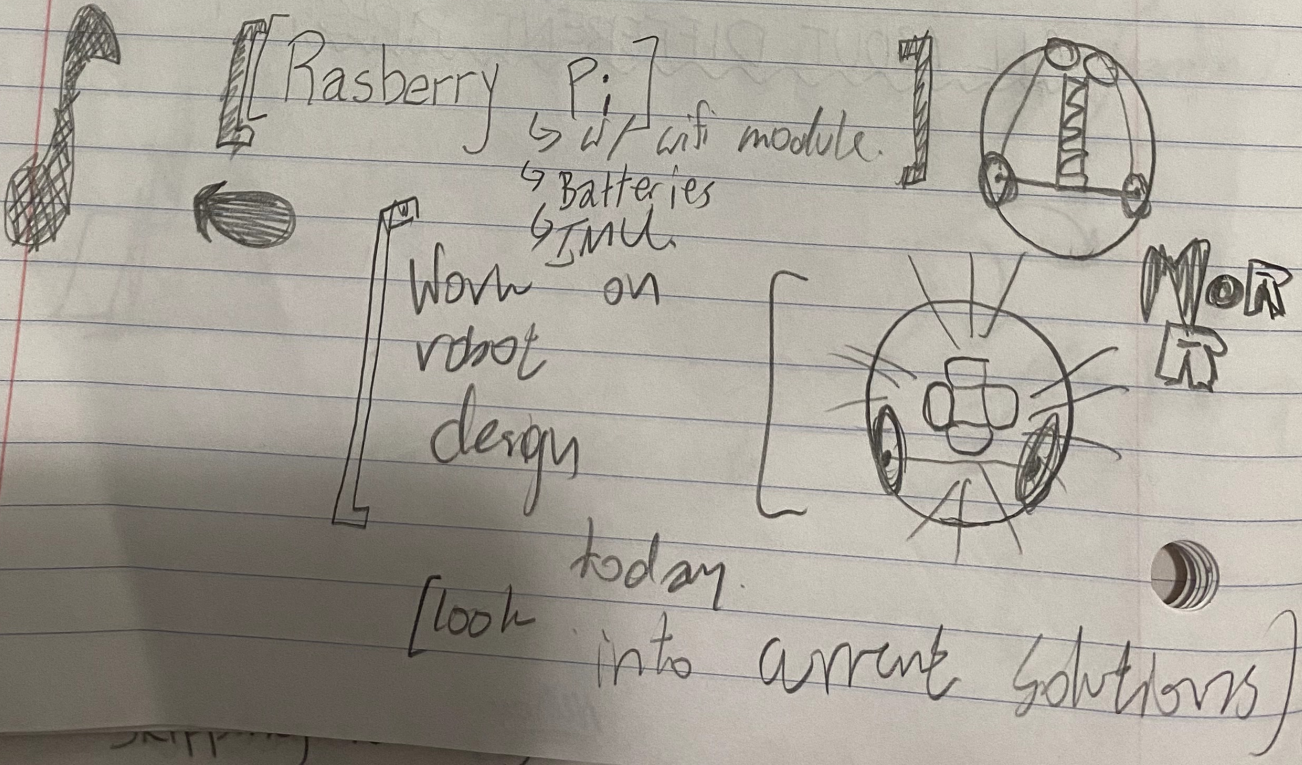 [Rasberry Pi]
↳ w/ wifi module.
↳ Batteries
↳ IMU.
Work on
robot
design
today.
[look into current solutions]